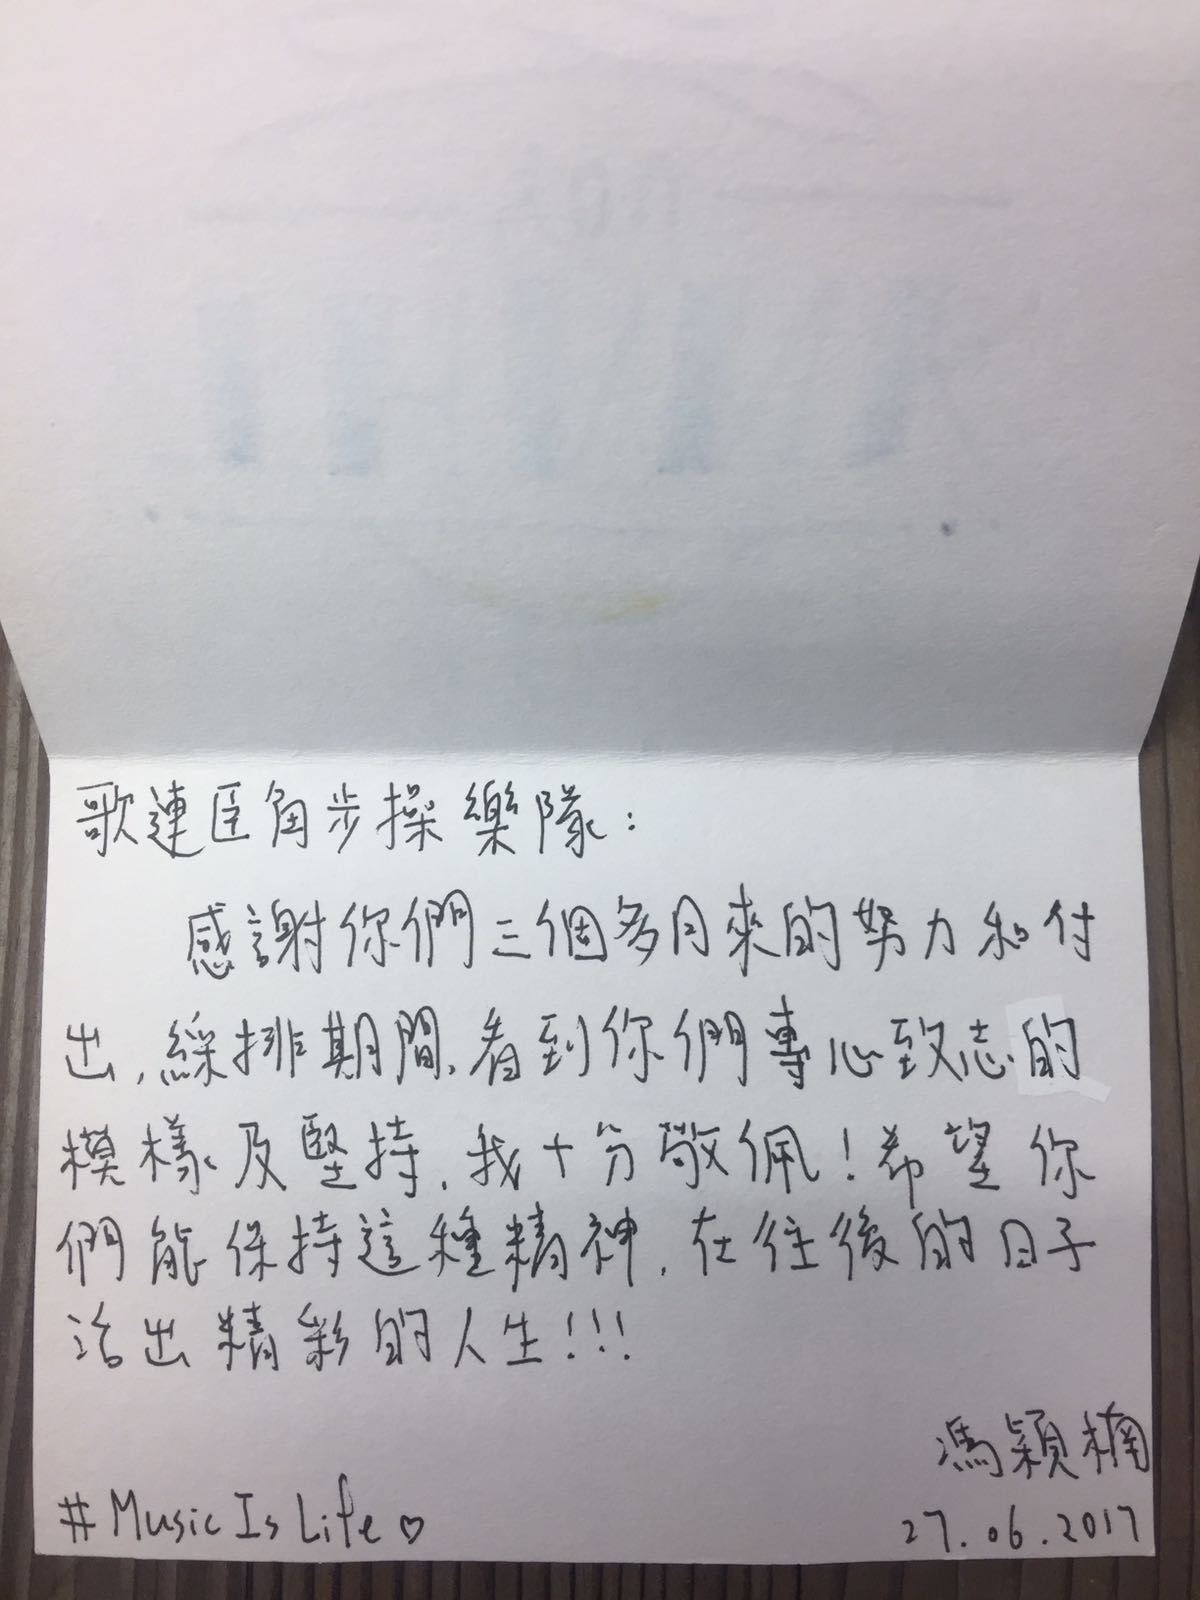 歌連臣角步操樂隊：
感謝你們三個多月來的努力和付
出，綵排期間，看到你們專心致志的
模樣及堅持，我十分敬佩！希望你
們能保持這種精神，在往後的日子
活出精彩的人生!!!
馮穎楠
#Music Is Life♡
27.06.2017